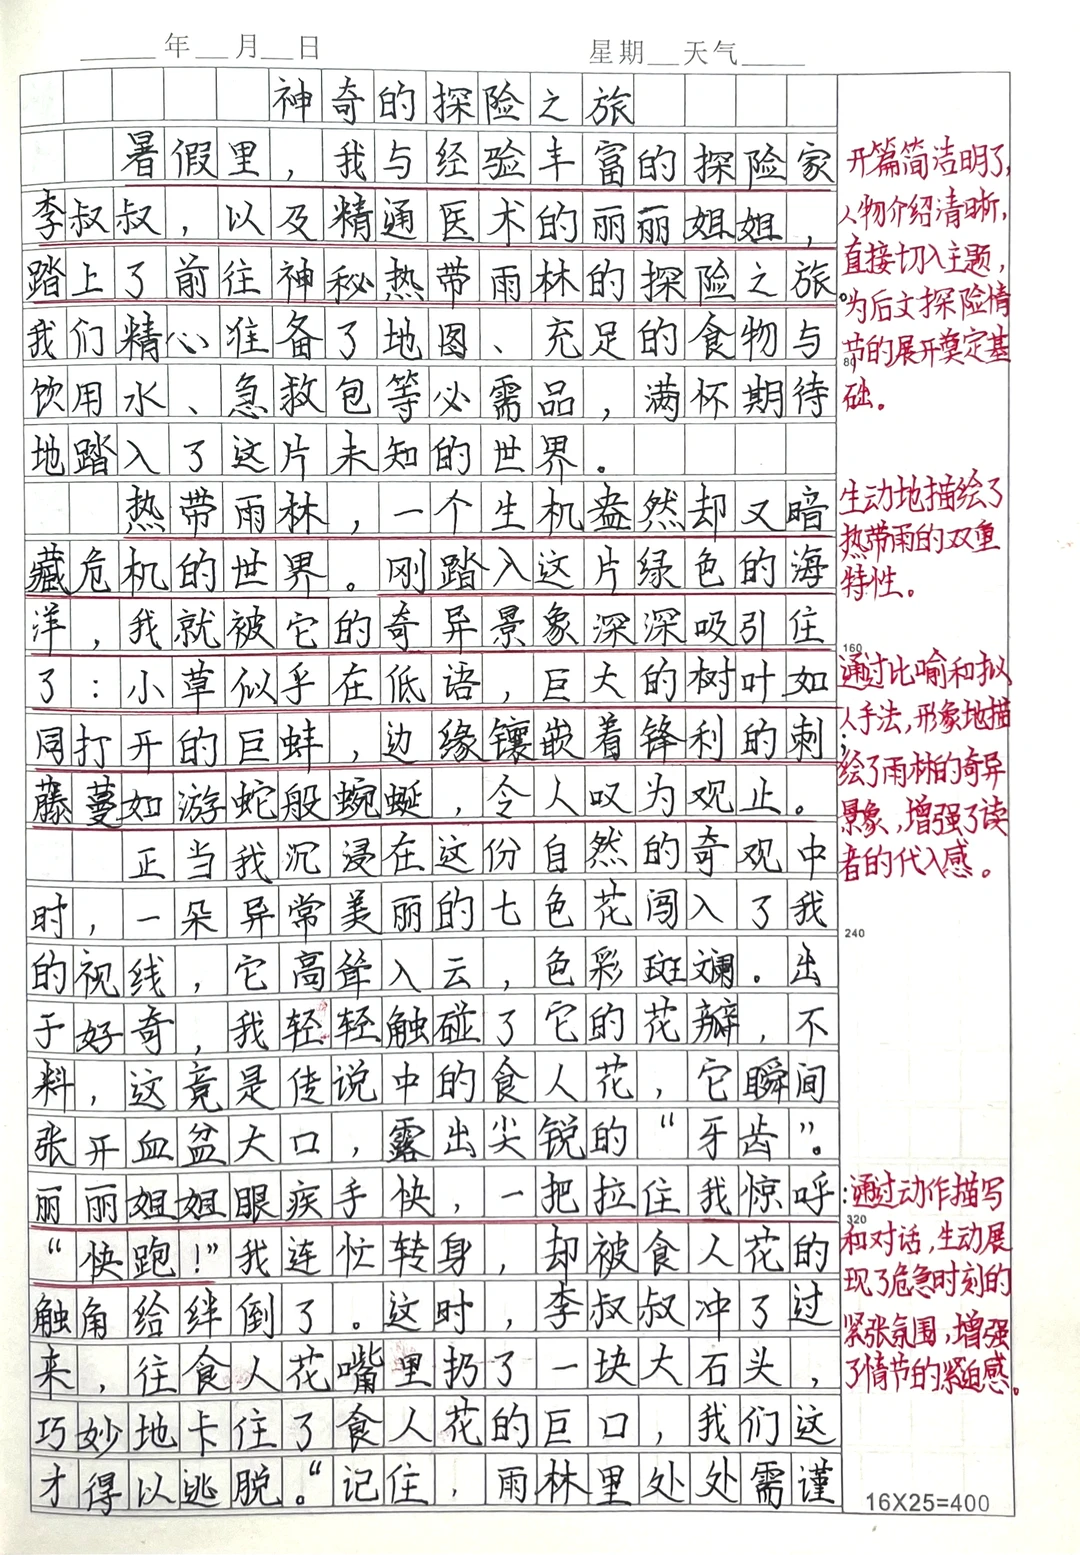 ____年__月__日 星期__天气____
神奇的探险之旅
暑假里，我与经验丰富的探险家
李叔叔，以及精通医术的丽丽姐姐，
踏上了前往神秘热带雨林的探险之旅。
我们精心准备了地图、充足的食物与
饮用水、急救包等必需品，满怀期待
地踏入了这片未知的世界。
热带雨林，一个生机盎然却又暗
藏危机的世界。刚踏入这片绿色的海
洋，我就被它的奇异景象深深吸引住
了：小草似乎在低语，巨大的树叶如
同打开的巨蚌，边缘镶嵌着锋利的刺；
藤蔓如游蛇般蜿蜒，令人叹为观止。
正当我沉浸在这份自然的奇观中
时，一朵异常美丽的七色花闯入了我
的视线，它高耸入云，色彩斑斓。出
于好奇，我轻轻触碰了它的花瓣，不
料，这竟是传说中的食人花，它瞬间
张开血盆大口，露出尖锐的“牙齿”。
丽丽姐姐眼疾手快，一把拉住我惊呼：
“快跑！”我连忙转身，却被食人花的
触角给绊倒了。这时，李叔叔冲了过
来，往食人花嘴里扔了一块大石头，
巧妙地卡住了食人花的巨口，我们这
才得以逃脱。“记住，雨林里处处需谨
开篇简洁明了，
人物介绍清晰，
直接切入主题，
为后文探险情
节的展开奠定基
础。
80
生动地描绘了
热带雨的双重
特性。
160
通过比喻和拟
人手法，形象地描
绘了雨林的奇异
景象，增强了读
者的代入感。
240
通过动作描写
320
和对话，生动展
现了危急时刻的
紧张氛围，增强
了情节的紧迫感。
16X25=400